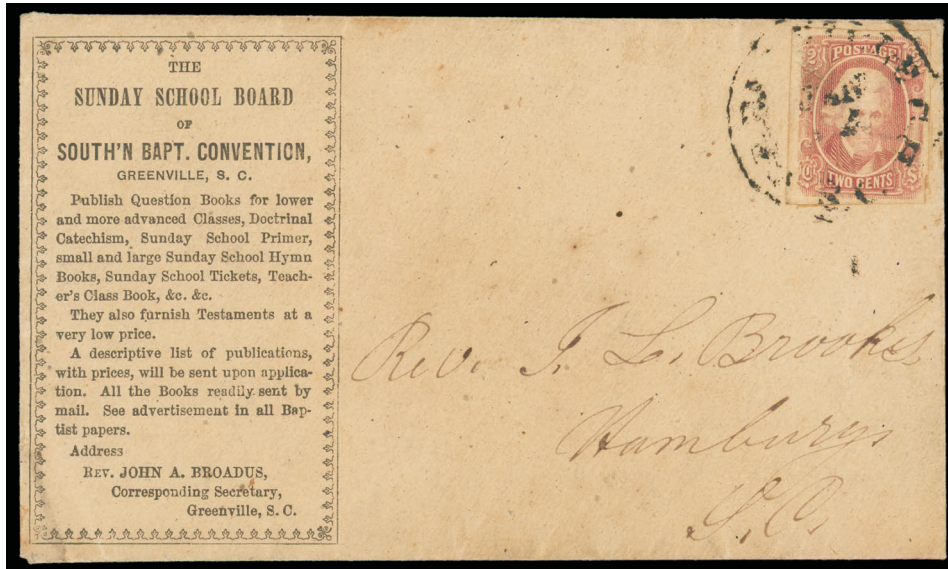 THE
SUNDAY SCHOOL BOARD
OF
SOUTH'N BAPT. CONVENTION,
GREENVILLE, S. C.
Publish Question Books for lower
and more advanced Classes, Doctrinal
Catechism, Sunday School Primer,
small and large Sunday School Hymn
Books, Sunday School Tickets, Teach-
er's Class Book, &c. &c.
They also furnish Testaments at a
very low price.
A descriptive list of publications,
with prices, will be sent upon applica-
tion. All the Books readily sent by
mail. See advertisement in all Bap-
tist papers.
Address
REV. JOHN A. BROADUS,
Corresponding Secretary,
Greenville, S. C.
POSTAGE
TWO CENTS
Rev. J. L. Brookes
Hamburg
S. C.